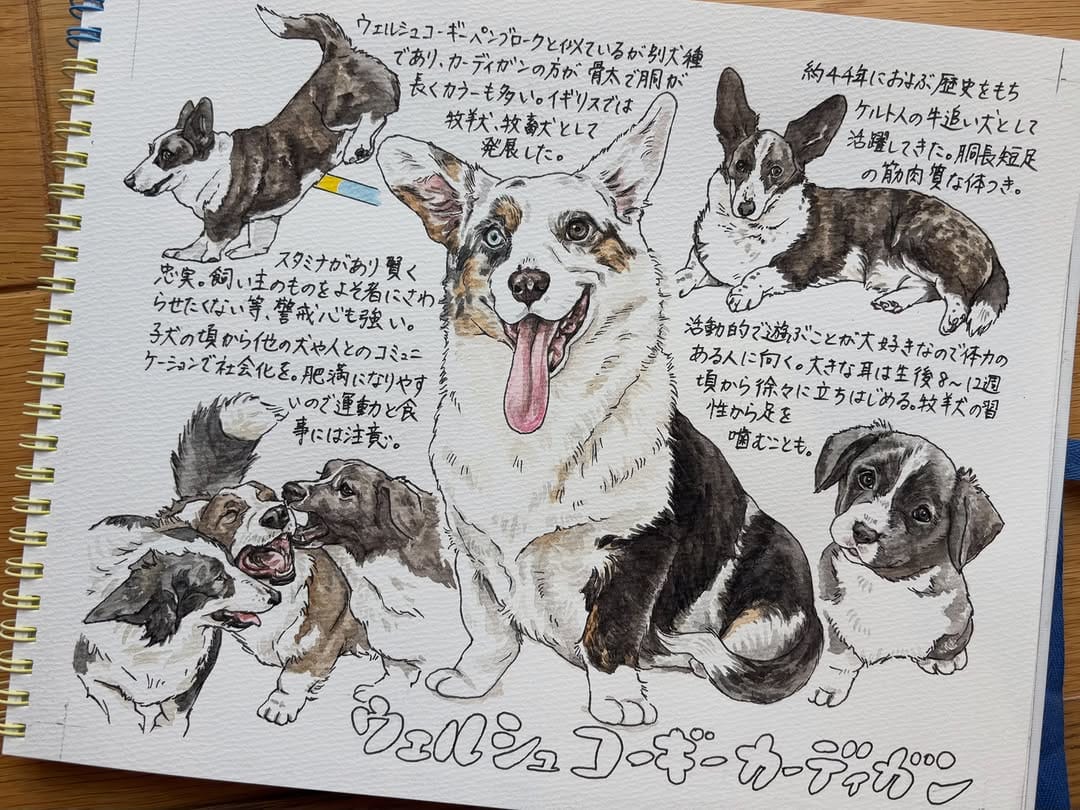 ウェルシュコーギーペンブロークと似ているが別犬種
であり、カーディガンの方が骨太で胴が
長くカラーも多い。イギリスでは
牧羊犬、牧畜犬として
発展した。
約44年におよぶ歴史をもち
ケルト人の牛追い犬として
活躍してきた。胴長短足
の筋肉質な体つき。
スタミナがあり賢く
忠実。飼い主のものをよそ者にさわ
らせたくない等、警戒心も強い。
子犬の頃から他の犬や人とのコミュニ
ケーションで社会化を。肥満になりやす
いので運動と食
事には注意。
活動的で遊ぶことが大好きなので体力の
ある人に向く。大きな耳は生後8〜12週
頃から徐々に立ちはじめる。牧羊犬の習
性から足を
噛むことも。
ウェルシュコーギーカーディガン